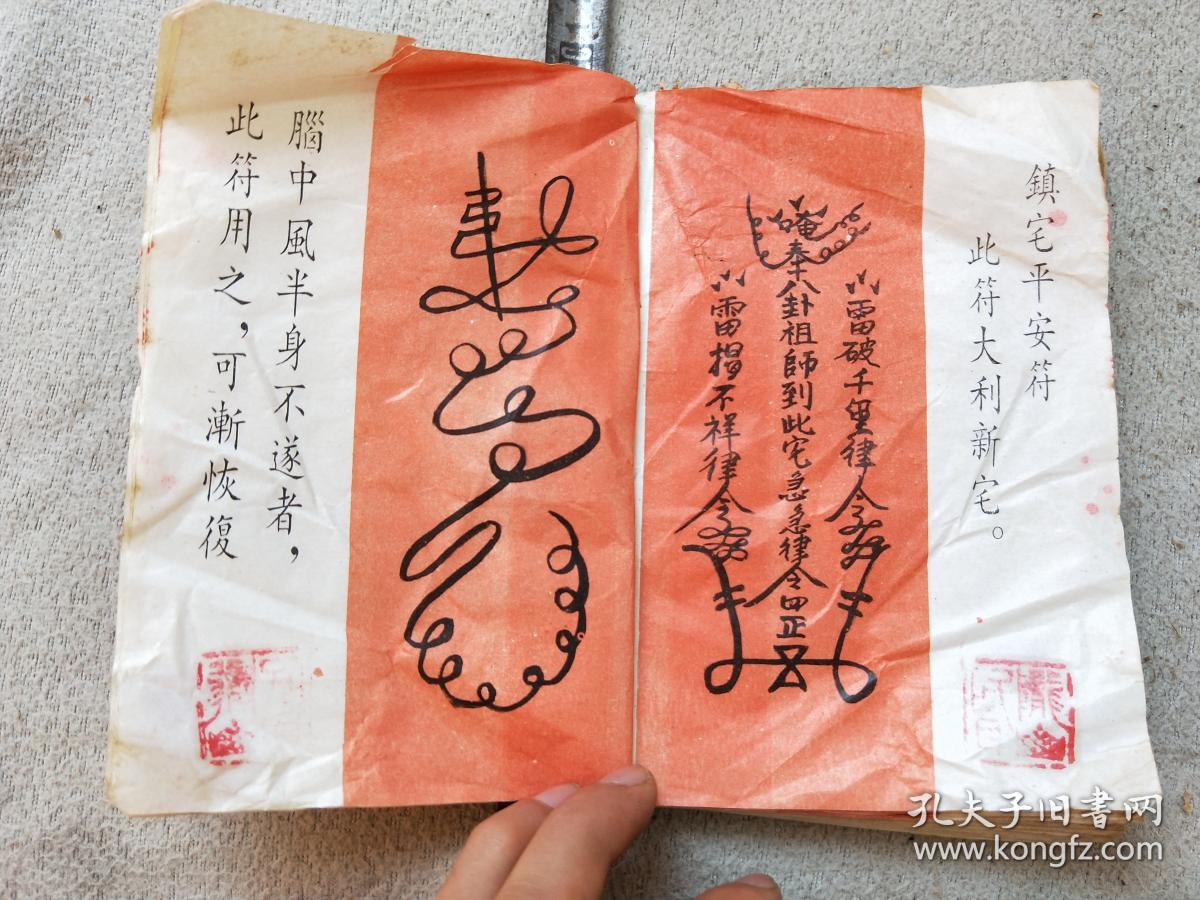 鎮宅平安符
此符大利新宅。
雷破千里律令
唵奉八卦祖師到此宅急急律令四正
雷揭不祥律令
腦中風半身不遂者，
此符用之，可漸恢復
孔夫子旧書网
www.kongfz.com